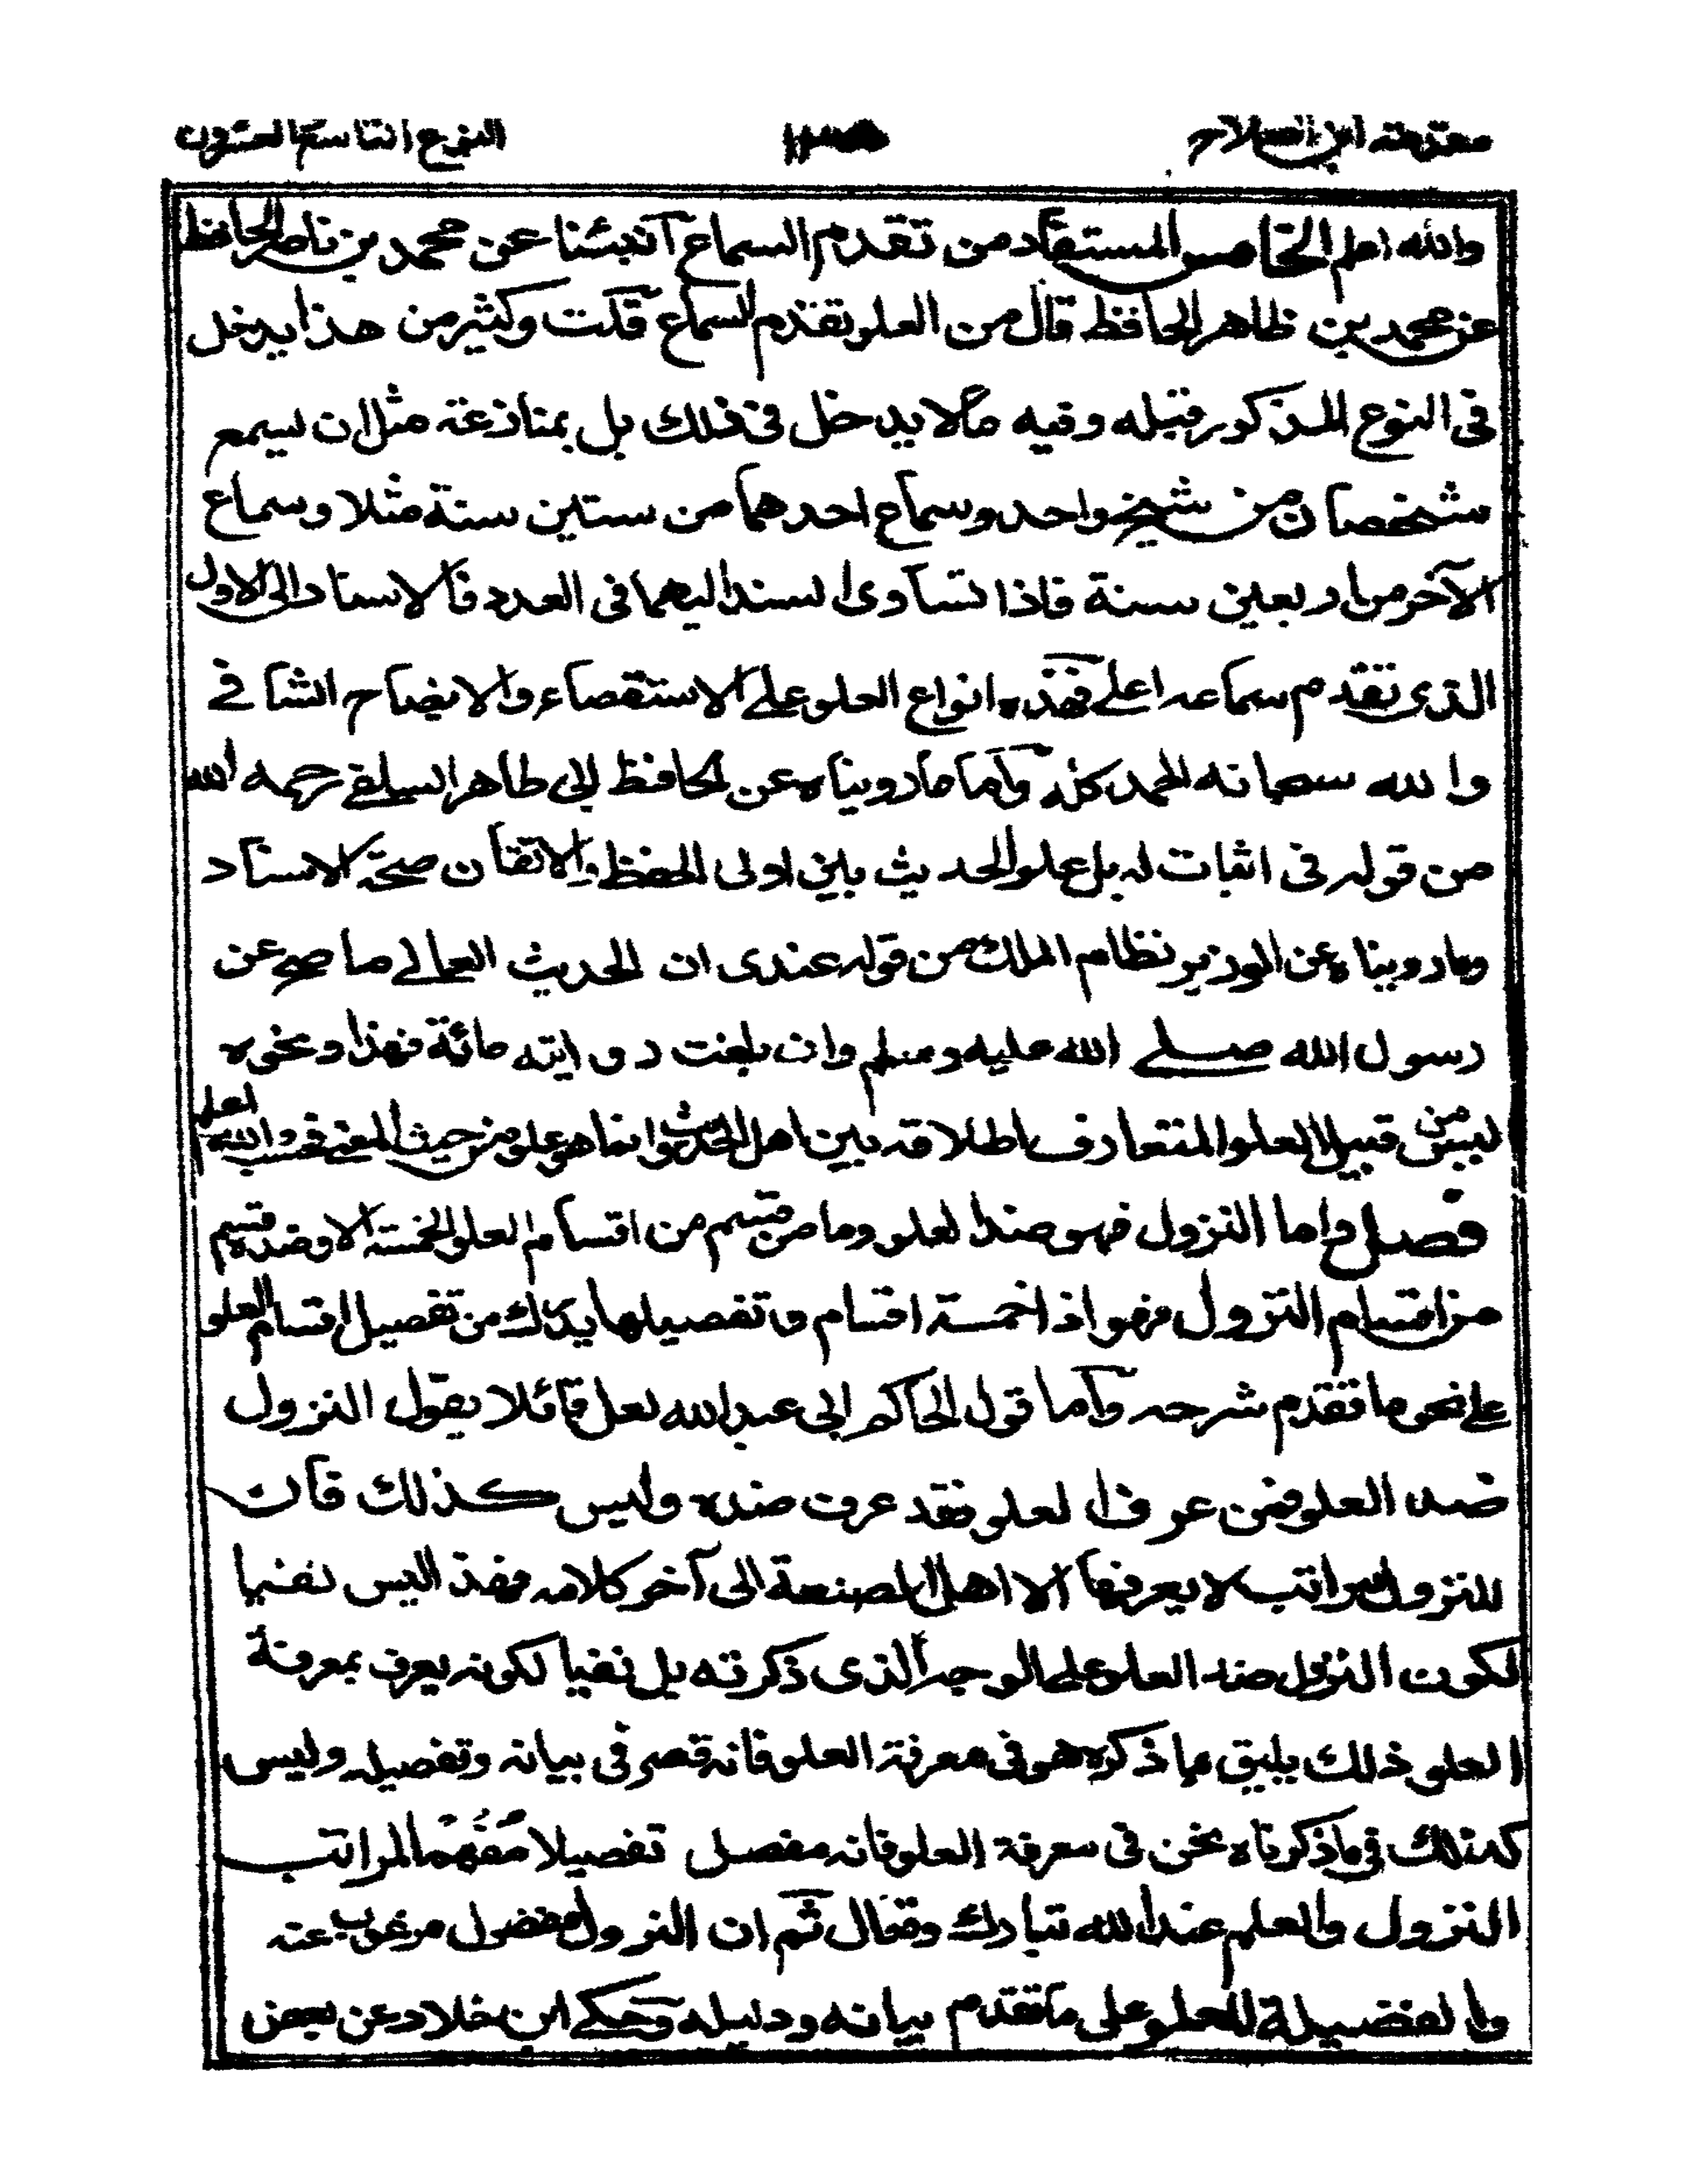 مقدمة ابن الصلاح النوع التاسع العشرون
والله اعلم الخامس المستفاد من تقدم السماع أنبئنا عن محمد بن ناصر الحافظ
عن محمد بن طاهر الحافظ قال من العلو تقدم السماع قلت وكثير من هذا يدخل
فى النوع المذكور قبله وفيه ما لا يدخل فى ذلك بل يمتاز عنه مثل ان يسمع
شخصان من شيخ واحد وسماع احدهما من ستين سنة مثلا وسماع
الآخر من اربعين سنة فاذا تساوى السند اليهما فى العدد فالاسناد الى الاول
الذى تقدم سماعه اعلى فهذه انواع العلو على الاستقصاء والايضاح الشافى
والله سبحانه الحمد كله وأما ما رويناه عن الحافظ ابى طاهر السلفى رحمه الله
من قوله فى ابيات له بل علو الحديث بين اولى الحفظ والاتقان صحة الاسناد
وما رويناه عن الوزير نظام الملك من قوله عندى ان الحديث العالى ما صح عن
رسول الله صلى الله عليه وسلم وان بلغت رواته مائة فهذا ونحوه
ليس من قبيل العلو المتعارف اطلاقه بين اهل الحديث وانما هو علو من حيث المعنى فحسب والله اعلم
فصل واما النزول فهو ضد العلو وما من قسم من اقسام العلو الخمسة الا وضده قسم
من اقسام النزول فهو اذا خمسة اقسام وتفصيلها يدرك من تفصيل اقسام العلو
على نحو ما تقدم شرحه وأما قول الحاكم ابى عبد الله لعل قائلا يقول النزول
ضد العلو فمن عرف العلو فقد عرف ضده وليس كذلك فان
للنزول مراتب لا يعرفها الا اهل الصنعة الى آخر كلامه فهذا ليس نفيا
لكون النزول ضد العلو على الوجه الذى ذكرته بل نفيا لكونه يعرف بمعرفة
العلو ذلك يليق بما ذكره هو فى معرفة العلو فانه قصر فى بيانه وتفصيله وليس
كذلك فى ما ذكرناه نحن فى معرفة العلو فانه مفصل تفصيلا مفهما لمراتب
النزول والعلم عند الله تبارك وتعالى ثم ان النزول مفضول مرغوب عنه
والفضيلة للعلو على ما تقدم بيانه ودليله وحكى ابن خلاد عن بعض